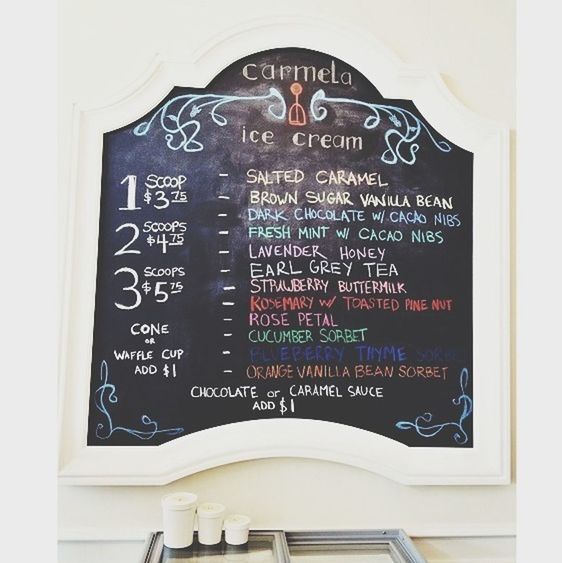 carmela
ice cream
1 SCOOP $3.75
2 SCOOPS $4.75
3 SCOOPS $5.75
CONE
OR
WAFFLE CUP
ADD $1
- SALTED CARAMEL
- BROWN SUGAR VANILLA BEAN
- DARK CHOCOLATE W/ CACAO NIBS
- FRESH MINT W/ CACAO NIBS
- LAVENDER HONEY
- EARL GREY TEA
- STRAWBERRY BUTTERMILK
- ROSEMARY W/ TOASTED PINE NUT
- ROSE PETAL
- CUCUMBER SORBET
- BLUEBERRY THYME SORBE
- ORANGE VANILLA BEAN SORBET
CHOCOLATE or CARAMEL SAUCE
ADD $1